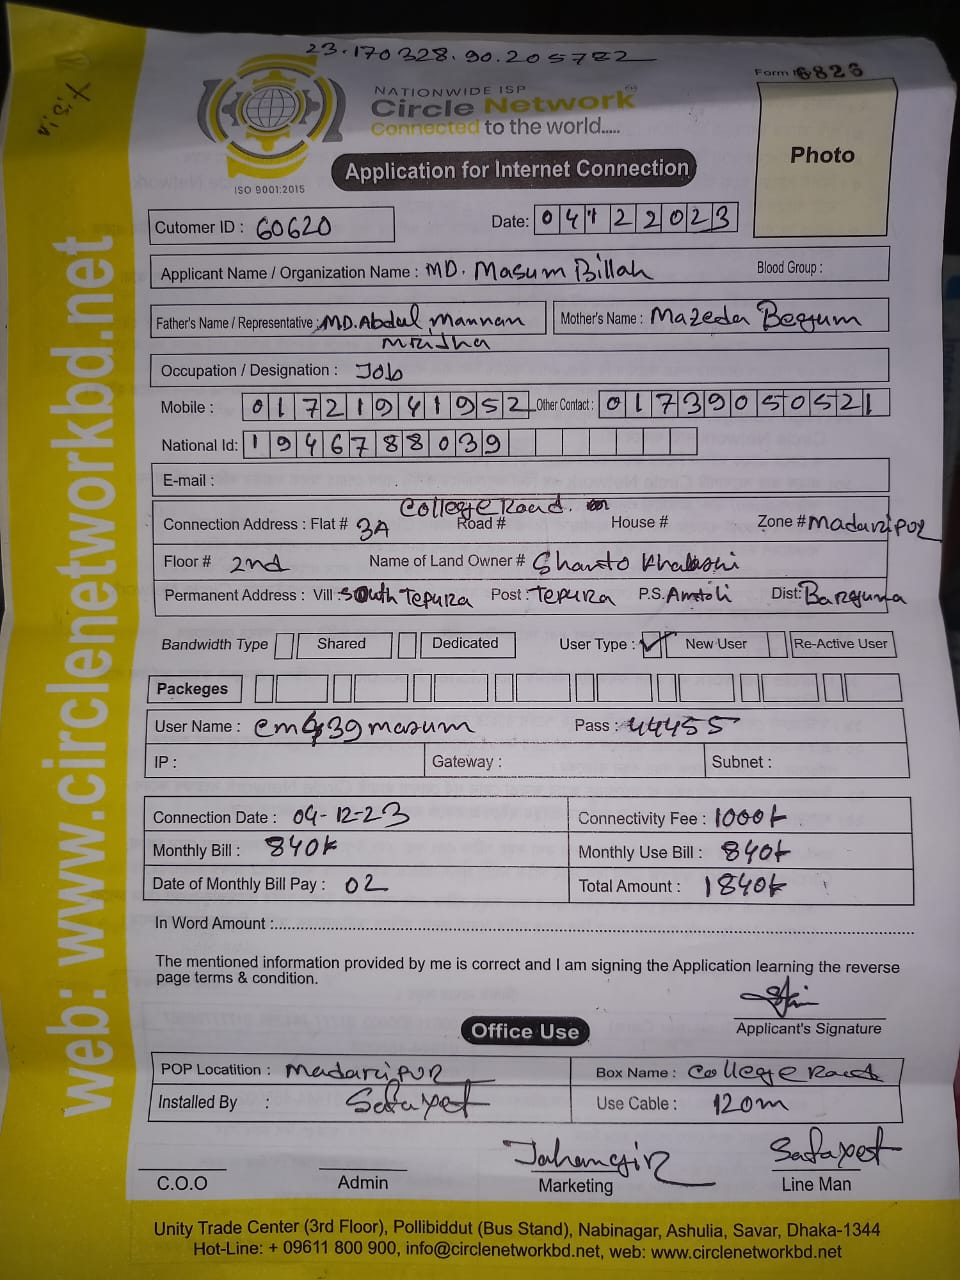 23.170328.90.205782
Form 6826
NATIONWIDE ISP
Circle Network
Connected to the world.....
ISO 9001:2015
Photo
Application for Internet Connection
Cutomer ID : 60620
Date: 04122023
Applicant Name / Organization Name : MD. Masum Billah
Blood Group :
Father's Name / Representative : MD. Abdul Mannan Mridha
Mother's Name : Mazeda Begum
Occupation / Designation : Job
Mobile : 01721941952 Other Contact : 01739050521
National Id: 1946788039
E-mail :
Connection Address : Flat # 3A College Road. Road # House # Zone # Madaripur
Floor # 2nd Name of Land Owner # Shanto Khalashi
Permanent Address : Vill : South Tepura Post : Tepura P.S. Amtoli Dist: Barguna
Bandwidth Type Shared Dedicated User Type : New User Re-Active User
Packeges
User Name : masum Pass : 44455
IP : Gateway : Subnet :
Connection Date : 04-12-23 Connectivity Fee : 1000t
Monthly Bill : 840t Monthly Use Bill : 840t
Date of Monthly Bill Pay : 02 Total Amount : 1840t
In Word Amount :
The mentioned information provided by me is correct and I am signing the Application learning the reverse
page terms & condition.
Applicant's Signature
Office Use
POP Locatition : Madaripur Box Name : College Road
Installed By : Safayet Use Cable : 120m
Jahangir Safayet
C.O.O Admin Marketing Line Man
Unity Trade Center (3rd Floor), Pollibiddut (Bus Stand), Nabinagar, Ashulia, Savar, Dhaka-1344
Hot-Line: + 09611 800 900, info@circlenetworkbd.net, web: www.circlenetworkbd.net
web: www.circlenetworkbd.net